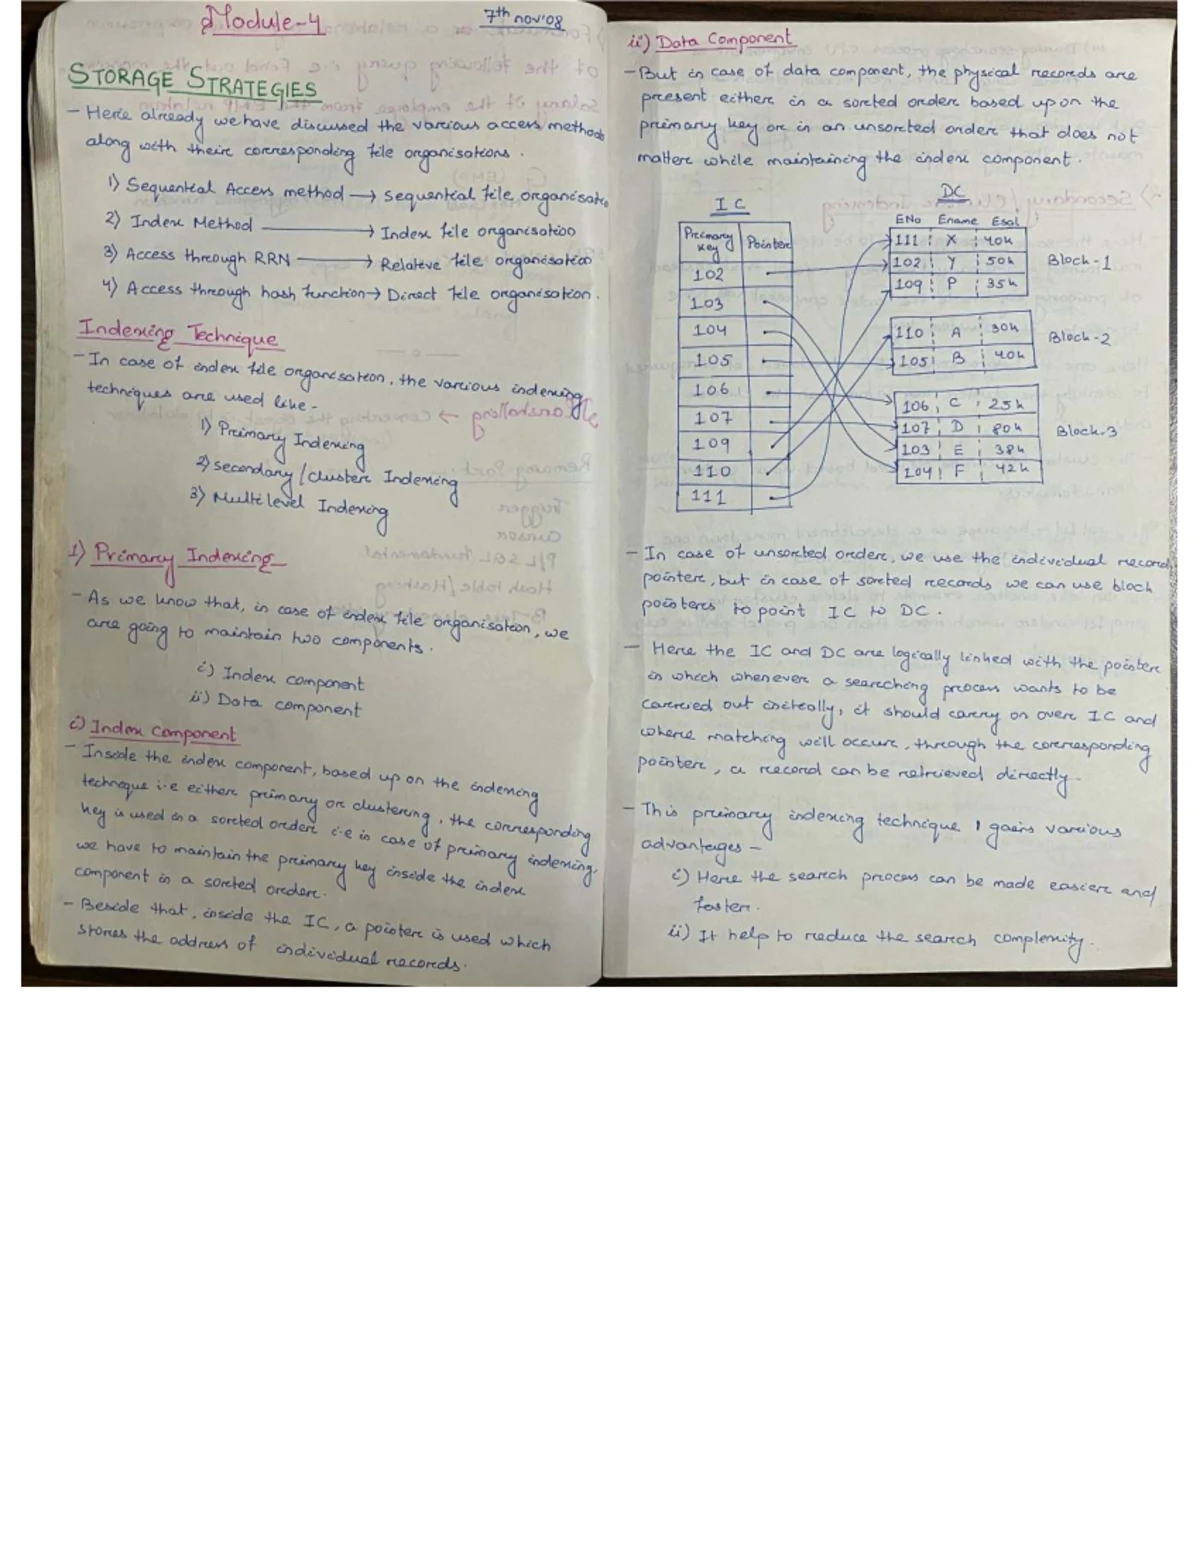 Module-4
7th nov'08
STORAGE STRATEGIES
- Here already we have discussed the various access methods
along with their corresponding file organisations.
1) Sequential Access method → Sequential file organisatio
2) Index Method → Index file organisation
3) Access through RRN → Relative file organisation
4) Access through hash function → Direct file organisation.
Indexing Technique
- In case of index file organisation, the various indexing
techniques are used like -
1) Primary Indexing
2) Secondary / cluster Indexing
3) Multilevel Indexing
1) Primary Indexing
- As we know that, in case of index file organisation, we
are going to maintain two components.
i) Index component
ii) Data component
i) Index component
- Inside the index component, based up on the indexing
technique i.e either primary or clustering, the corresponding
key is used in a sorted order i.e in case of primary indexing,
we have to maintain the primary key inside the index
component in a sorted order.
- Beside that, inside the IC, a pointer is used which
stores the address of individual records.
ii) Data Component
- But in case of data component, the physical records are
present either in a sorted order based upon the
primary key or in an unsorted order that does not
matter while maintaining the index component.
IC
Primary key Pointer
102
103
104
105
106
107
109
110
111
DC
ENo Ename Esal
111 X 40k
102 Y 50k
109 P 35k
Block-1
110 A 30k
105 B 40k
Block-2
106 C 25k
107 D 80k
103 E 38k
104 F 42k
Block-3
- In case of unsorted order, we use the individual record
pointer, but in case of sorted records we can use block
pointers to point IC to DC.
- Here the IC and DC are logically linked with the pointer
in which whenever a searching process wants to be
carried out initially, it should carry on over IC and
where matching will occur, through the corresponding
pointer, a record can be retrieved directly.
- This primary indexing technique gains various
advantages -
i) Here the search process can be made easier and
faster.
ii) It help to reduce the search complexity.